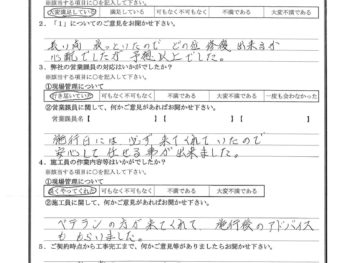 ※該当する項目に○を記入して下さい。
大変満足している 満足している 可もなく不可もなく 不満である 大変不満である
2.「1」についてのご意見をお聞かせ下さい。
長い間 放っといたので どの位 修復 出来るか
心配でしたが 予想以上でした。
3. 弊社の営業課員の対応はいかがでしたか?
※該当する項目に○を記入して下さい。
①現場管理について
行き届いていた 可もなく不可もなく 不満である 大変不満である 一度も会わなかった
②営業課員に関して、何かご意見があればお聞かせ下さい。
営業課員名【 】【 】【
施行日には 必ず 来てくれていたので
安心して 任せる事が出来ました。
4. 施工員の作業内容等はいかがでしたか?
※該当する項目に○を記入して下さい。
①現場管理について
良くやってくれた 可もなく不可もなく 不満である 大変不満である
②施工員に関して、何かご意見があればお聞かせ下さい。
ベテランの方が来てくれて 施行後のアドバイス
も もらいました。
5. ご契約時点から工事完工まで、何かご意見等がありましたらお聞かせ下さい。